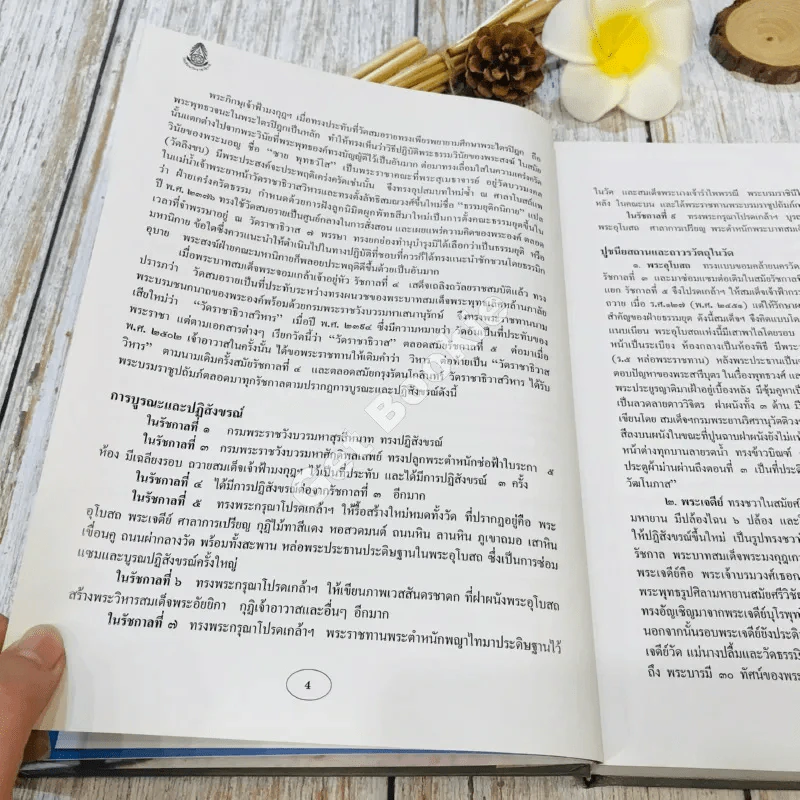 พระภิกษุเจ้าฟ้ามงกุฎฯ เมื่อทรงประทับที่วัดสมอรายทรงเพียรพยายามศึกษาพระไตรปิฎก ถือ
พระพุทธวจนะในพระไตรปิฎกเป็นหลัก ทำให้ทรงเห็นว่าวิธีปฏิบัติพระธรรมวินัยของพระสงฆ์ ในสมัย
นั้นแตกต่างไปจากพระวินัยที่พระพุทธองค์ทรงบัญญัติไว้เป็นอันมาก ต่อมาทรงเลื่อมใสในความเคร่งครัด
วินัยของพระมอญ ชื่อ "ซาย พุทฺธวํโส" เป็นพระราชาคณะที่พระสุเมธาจารย์ อยู่วัดบวรมงคล
(วัดลิงขบ) มีพระประสงค์จะประพฤติเคร่งครัดเช่นนั้น จึงทรงอุปสมบทใหม่ซ้ำ ณ ศาลาในสมัพ
ในแม่น้ำเจ้าพระยาหน้าวัดราชาธิวาสวิหารและทรงตั้งลัทธิสมณวงศ์ขึ้นใหม่ชื่อ "ธรรมยุติกนิกาย" แปล
ว่า ฝ่ายเคร่งครัดธรรม กำหนดด้วยการฝังลูกนิมิตผูกพัทธสีมาใหม่เป็นการตั้งคณะธรรมยุตขึ้นใน
ปี พ.ศ. ๒๓๗๖ ทรงใช้วัดสมอรายเป็นศูนย์กลางในการสั่งสอน และเผยแพร่ความคิดของพระองค์ ตลอด
เวลาที่จำพรรษาอยู่ ณ วัดราชาธิวาส ๗ พรรษา ทรงยกย่องทำนุบำรุงมิได้เลือกว่าเป็นธรรมยุติ หรือ
มหานิกาย ข้อใดซึ่งควรแนะนำให้ดำเนินไปในทางปฏิบัติที่ชอบที่ควรก็ได้ทรงแนะนำชักชวนโดยธรรมิก
อุบาย พระสงฆ์ฝ่ายคณะมหานิกายก็พลอยประพฤติดีขึ้นด้วยเป็นอันมาก
เมื่อพระบาทสมเด็จพระจอมเกล้าเจ้าอยู่หัว รัชกาลที่ ๔ เสด็จเถลิงถวัลยราชสมบัติแล้ว ทรง
ปรารภว่า วัดสมอรายเป็นที่ประทับระหว่างทรงผนวชของพระบาทสมเด็จพระพุทธเลิศหล้านภาลัย
พระบรมชนกนาถของพระองค์พร้อมด้วยกรมพระราชวังบวรมหาเสนานุรักษ์ จึงทรงพระราชทานนาม
เสียใหม่ว่า "วัดราชาธิวาสวิหาร" เมื่อปี พ.ศ. ๒๓๙๔ ซึ่งมีความหมายว่า วัดอันเป็นที่ประทับของ
พระราชา แต่ตามเอกสารต่างๆ เรียกวัดนี้ว่า "วัดราชาธิวาส" ตลอดสมัยรัชกาลที่ ๕ ต่อมาเมื่อ
พ.ศ. ๒๕๐๒ เจ้าอาวาสในครั้งนั้น ได้ขอพระราชทานให้เติมคำว่า วิหาร ต่อท้ายเป็น "วัดราชาธิวาส
วิหาร" ตามนามเดิมครั้งสมัยรัชกาลที่ ๔ และตลอดสมัยกรุงรัตนโกสินทร์ วัดราชาธิวาสวิหาร ได้รับ
พระบรมราชูปถัมภ์ตลอดมาทุกรัชกาลตามปรากฏการบูรณะและปฏิสังขรณ์ดังนี้
การบูรณะและปฏิสังขรณ์
ในรัชกาลที่ ๑ กรมพระราชวังบวรมหาสุรสิงหนาท ทรงปฏิสังขรณ์
ในรัชกาลที่ ๓ กรมพระราชวังบวรมหาศักดิพลเสพย์ ทรงปลูกพระตำหนักช่อฟ้าใบระกา ๕
ห้อง มีเฉลียงรอบ ถวายสมเด็จเจ้าฟ้ามงกุฎฯ ไว้เป็นที่ประทับ และได้มีการปฏิสังขรณ์ ๓ ครั้ง
ในรัชกาลที่ ๔ ได้มีการปฏิสังขรณ์ต่อจากรัชกาลที่ ๓ อีกมาก
ในรัชกาลที่ ๕ ทรงพระกรุณาโปรดเกล้าฯ ให้รื้อสร้างใหม่หมดทั้งวัด ที่ปรากฏอยู่คือ พระ
อุโบสถ พระเจดีย์ ศาลาการเปรียญ กุฏิไม้ทาสีแดง หอสวดมนต์ ถนนหิน ลานหิน ภูเขาถมอ เสาหิน
เขื่อนคู ถนนผ่ากลางวัด พร้อมทั้งสะพาน หล่อพระประธานประดิษฐานในพระอุโบสถ ซึ่งเป็นการซ่อม
แซมและบูรณปฏิสังขรณ์ครั้งใหญ่
ในรัชกาลที่ ๖ ทรงพระกรุณาโปรดเกล้าฯ ให้เขียนภาพเวสสันดรชาดก ที่ฝาผนังพระอุโบสถ
สร้างพระวิหารสมเด็จพระอัยยิกา กุฏิเจ้าอาวาสและอื่นๆ อีกมาก
ในรัชกาลที่ ๗ ทรงพระกรุณาโปรดเกล้าฯ พระราชทานพระตำหนักพญาไทมาประดิษฐานไว้
4
ในวัด และสมเด็จพระนางเจ้ารำไพพรรณี พระบรมราชินี
หลัง ในคณะบน และได้พระราชทานพระบรมราชูปถัมภ์
ในรัชกาลที่ ๙ ทรงพระกรุณาโปรดเกล้าฯ
พระอุโบสถ ศาลาการเปรียญ พระตำหนักพระบาทสมเด็จ
ปูชนียสถานและถาวรวัตถุในวัด
๑. พระอุโบสถ ทรงแบบขอมคล้ายนครวัด
รัชกาลที่ ๓ และมาซ่อมแซมต่อเติมในสมัยรัชกาลที่
แยก รัชกาลที่ ๕ จึงโปรดเกล้าฯ ให้สมเด็จเจ้าฟ้ากรม
ถวาย เมื่อ ร.ศ.๑๒๗ (พ.ศ. ๒๔๕๑) แต่ให้รักษา
สำคัญของฝ่ายธรรมยุต ดังนี้สมเด็จฯ จึงคิดแบบ
แนบเนียน พระอุโบสถแห่งนี้มีเสาพาไลโดยรอบ
หน้าเป็นระเบียง ห้องกลางเป็นห้องพิธี มีพระ
(ร.๕ หล่อพระราชทาน) หลังพระประธานเป็น
ตอบปัญหาของพระสารีบุตร ในเรื่องพุทธวงศ์ และ
พระประยูรญาติมาเฝ้าอยู่เบื้องหลัง มีซุ้มคูหา
เป็นลวดลายดาววิจิตร ฝาผนังทั้ง ๓ ด้าน
เขียนโดย สมเด็จฯกรมพระยานริศรานุวัดติวงศ์
สีลงบนผนังในขณะที่ปูนฉาบฝาผนังยังไม่แห้ง
หน้าต่างทุกบานลายรดน้ำ ทรงข้าวบิณฑ์
ประตูผ้าม่านผ่านถึงตอนที่ ๓ เป็นที่ประ
วัฒโนภาส"
๒. พระเจดีย์ ทรงชวาในสมัยศรี
มหายาน มีปล้องไฉน ๖ ปล้อง และ
ให้ปฏิสังขรณ์ขึ้นใหม่ เป็นรูปทรงชวา
รัชกาล พระบาทสมเด็จพระมงกุฎเกล้า
พระเจดีย์คือ พระเจ้าบรมวงศ์เธอกรม
พระพุทธรูปศิลามหายานสมัยศรีวิชัย
ทรงอัญเชิญมาจากพระเจดีย์บุโรพุทโธ
นอกจากนั้นรอบพระเจดีย์ยังประดิษ
เจดีย์วัด แม่นางปลื้มและวัดธรรมิ
ถึง พระบารมี ๓๐ ทัศน์ของพระ